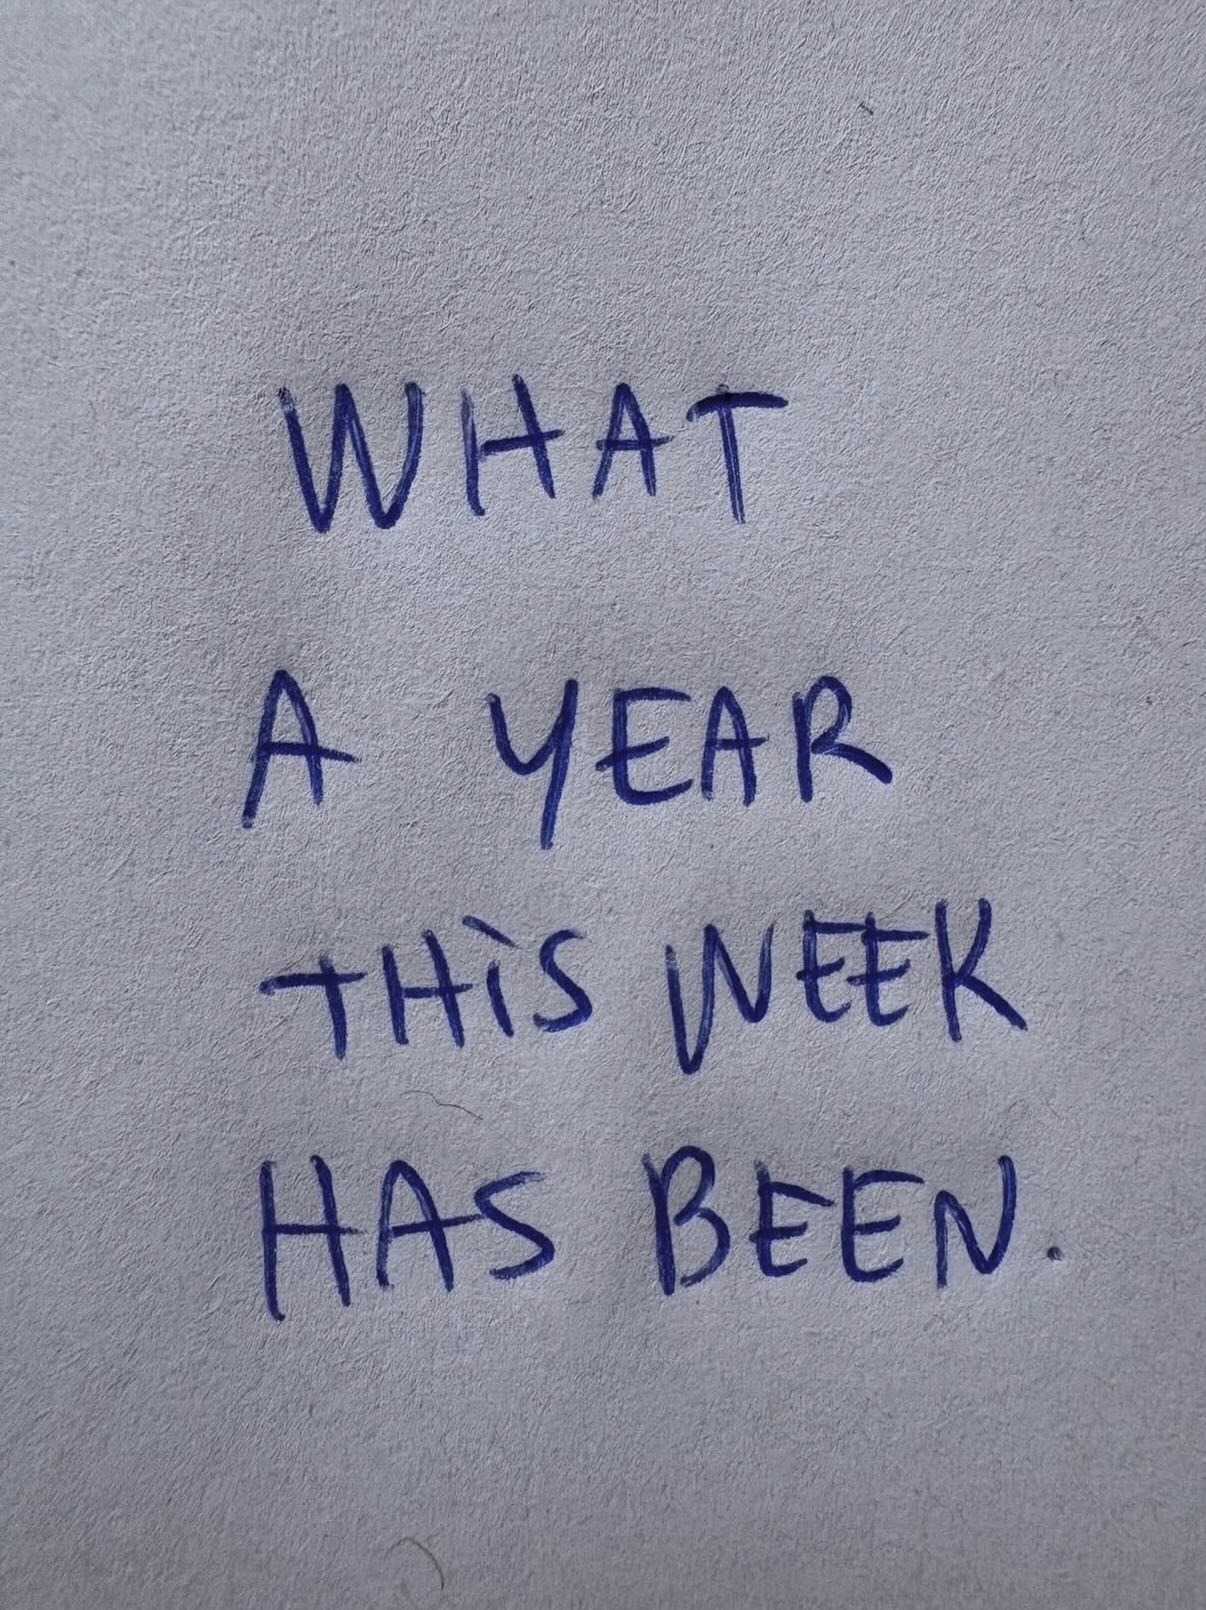 WHAT
A YEAR
THiS WEEK
HAS BEEN.